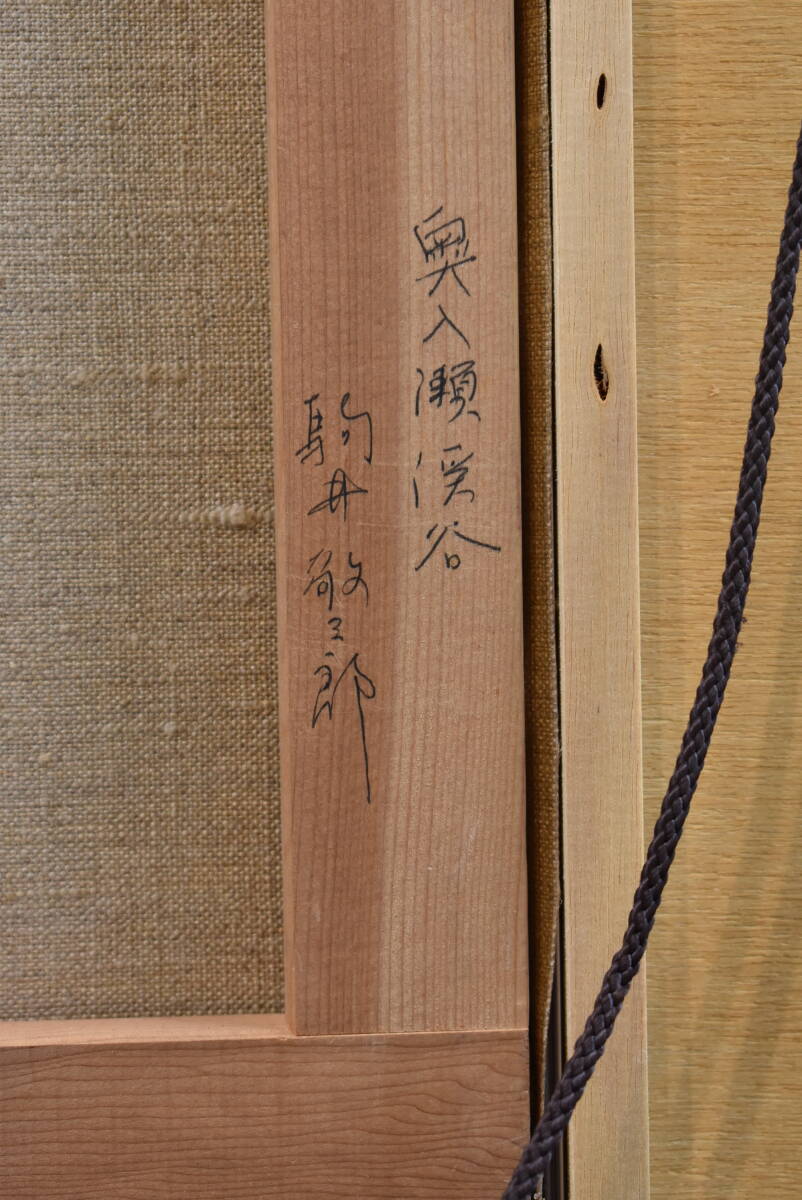 奥入瀬渓谷
駒井敬三郎